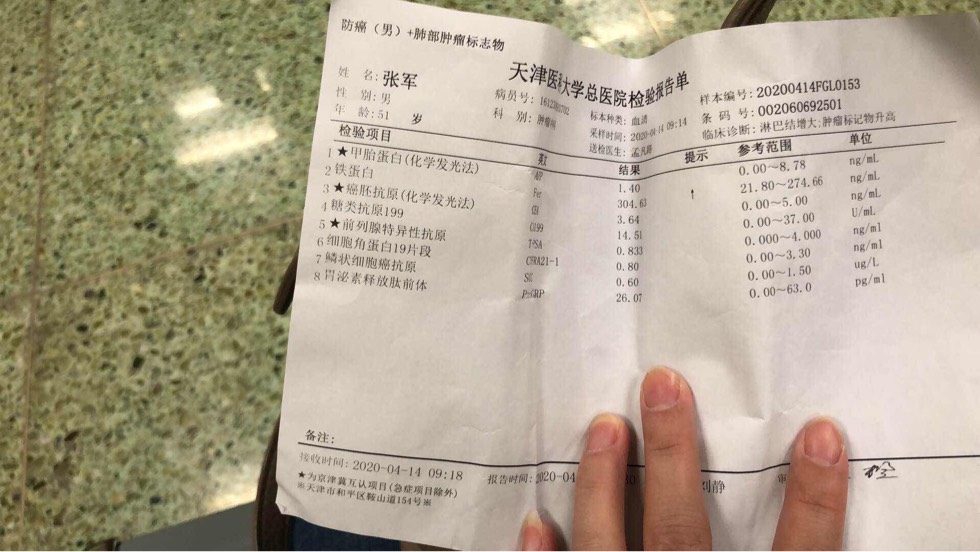 防癌（男）+肺部肿瘤标志物
天津医科大学总医院检验报告单
姓 名：张军 病员号： 标本种类：血清 样本编号：20200414FGL0153
性 别：男 科 别：肿瘤 采样时间：2020-04-14 09:14 条 码 号：002060692501
年 龄：51 岁 送检医生： 临床诊断：淋巴结增大;肿瘤标记物升高
检验项目 结果 提示 参考范围 单位
1 ★甲胎蛋白(化学发光法) AFP 1.40 0.00～8.78 ng/mL
2 铁蛋白 Fer 304.63 ↑ 21.80～274.66 ng/mL
3 ★癌胚抗原(化学发光法) CEA 3.64 0.00～5.00 ng/mL
4 糖类抗原199 C199 14.51 0.00～37.00 U/mL
5 ★前列腺特异性抗原 0.833 0.000～4.000 ng/ml
6 细胞角蛋白19片段 0.80 0.00～3.30 ng/ml
7 鳞状细胞癌抗原 0.60 0.00～1.50 ug/L
8 胃泌素释放肽前体 26.07 0.00～63.0 pg/ml
备注：
接收时间：2020-04-14 09:18 报告时间：2020-04 刘静
★为京津冀互认项目(急症项目除外)
※天津市和平区鞍山道154号※